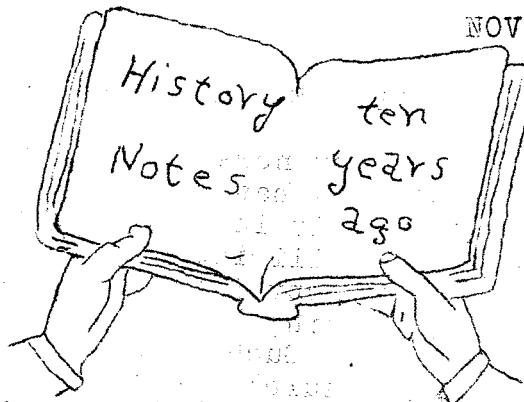 NOV
History
Notes
ten
years
ago